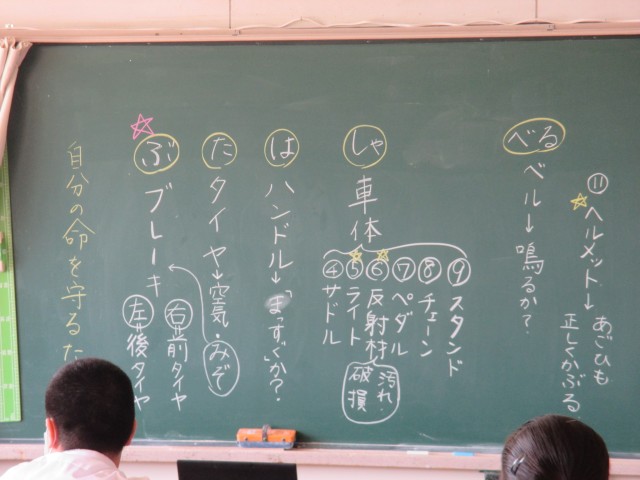 ⑪ヘルメット→あごひも
正しくかぶる
べる
ベル→鳴るか?
しゃ
車体
⑨スタンド
⑧チェーン
⑦ペダル
⑥反射材
汚れ・
破損
⑤ライト
④サドル
は
ハンドル→「まっすぐ」か?
た
タイヤ→空気・みぞ
ぶ
ブレーキ
右=前タイヤ
左=後タイヤ
自分の命を守るた